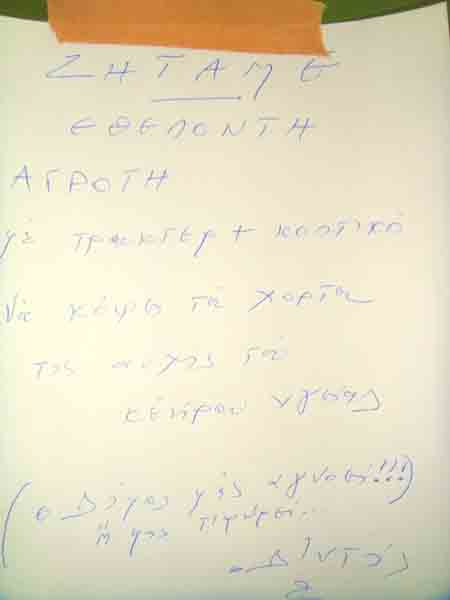 ΖΗΤΑΜΕ
ΕΘΕΛΟΝΤΗ
ΑΓΡΟΤΗ
μέ τρακτερ + κοπτικό
Νά κόψει τά χορτα
της αυλης τού
κέντρου υγείας
(ο Δήμος μάς αγνοεί!!!)
ή μας τιμωρεί...